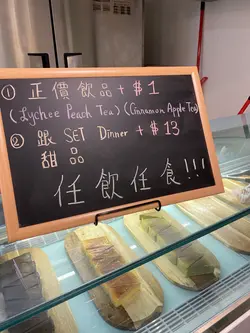 ① 正價飲品 + $1
(Lychee Peach Tea) (Cinnamon Apple Tea)
② 跟 SET Dinner + $13
甜品
任飲任食!!!